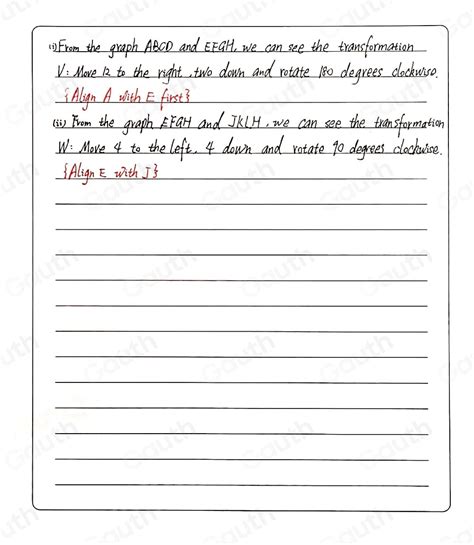 (i) From the graph ABCD and EFGH, we can see the transformation
V: Move 12 to the right, two down and rotate 180 degrees clockwise.
{Align A with E first}
(ii) From the graph EFGH and JKLH, we can see the transformation
W: Move 4 to the left, 4 down and rotate 90 degrees clockwise.
{Align E with J}
Gauth